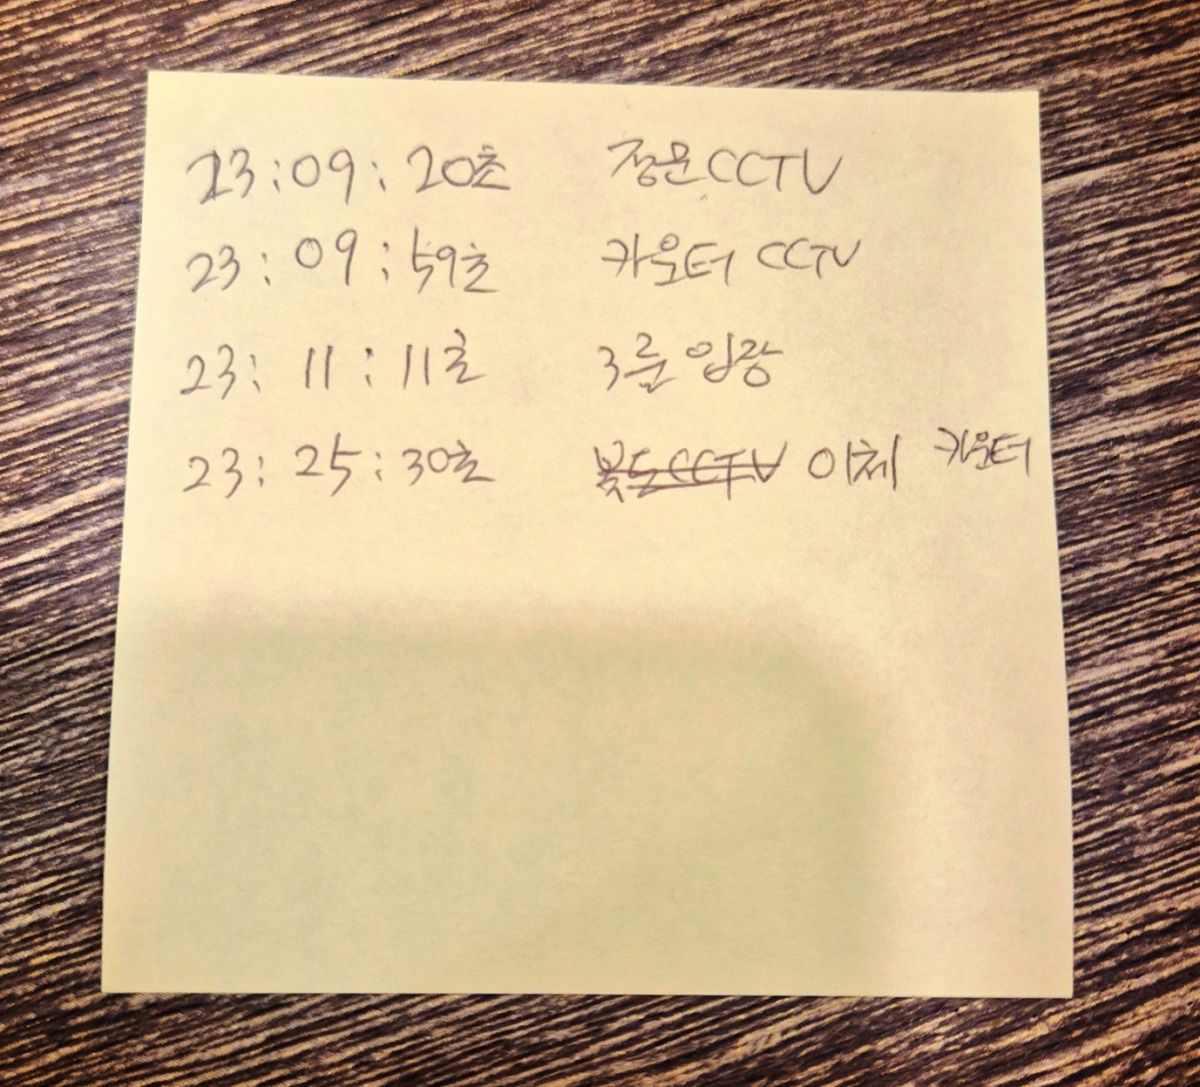 23:09:20초 정문CCTV
23:09:59초 카운터 CCTV
23:11:11초 3룸 입장
23:25:30초 복도CCTV 이체 카운터